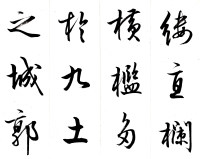 縷直欄
橫檻多
於九土
之城郭